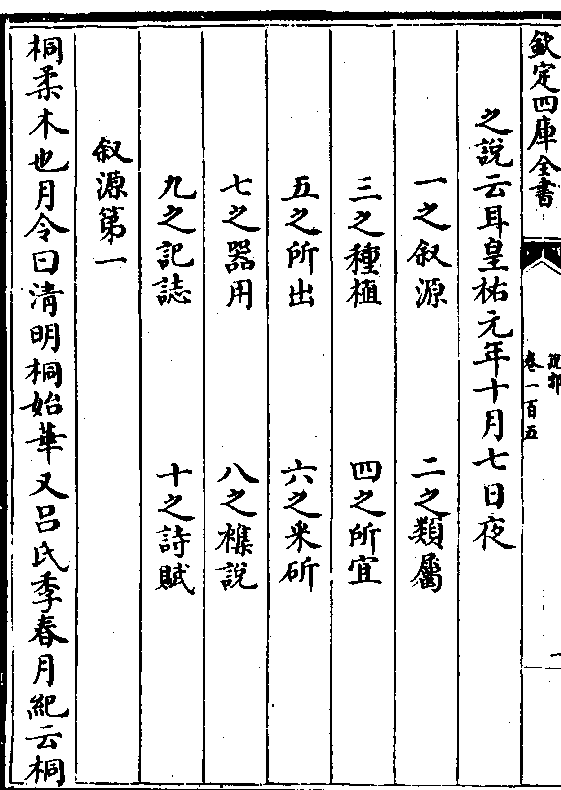 欽定四庫全書
說郛
卷一百五
一
之說云耳皇祐元年十月七日夜
一之叙源 二之類屬
三之種植 四之所宜
五之所出 六之采斫
七之器用 八之襍說
九之記誌 十之詩賦
叙源第一
桐柔木也月令曰清明桐始華又吕氏季春月紀云桐